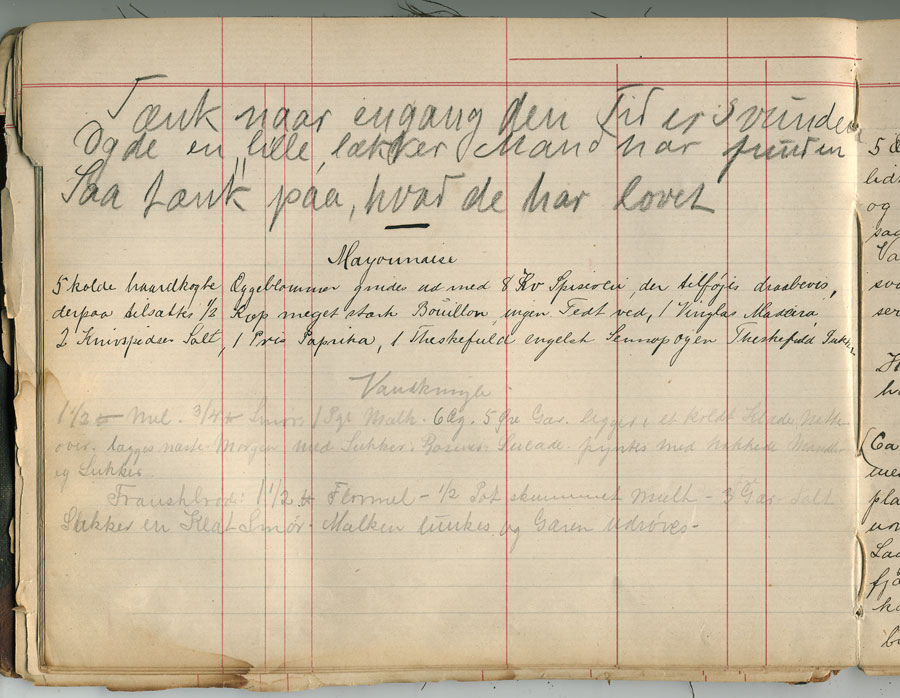 Tænk naar engang den Tid er svunden
Og de en lille lækker Mand har funden
Saa tænk paa, hvad de har lovet
Mayonnaise
5 kolde haardkogte Æggeblommer gnides ud med 8 Kv Spiseolie, der tilføjes draabevis,
derpaa tilsættes 1/2 Kop meget stærk Bouillon, ingen Fedt ved, 1 Vinglas Madeira,
2 Knivspidser Salt, 1 Pris Paprika, 1 Theskefuld engelsk Sennop og en Theskefuld Sukker
Vandkringle
1 1/2 ℔ Mel. 3/4 ℔ Smør. 1 Pgl Mælk. 6 Æg. 5 Øre Gær. lægges i et koldt Klæde, Natten
over. lægges næste Morgen med Sukker. Rosiner. Sucade. pyntes med hakkede Mandl
og Sukker.
Franskbrød: 1 1/2 ℔ Flormel - 1/2 Pot skummet Mælk - 3 Gær. Salt
Sukker en Klat Smør. Mælken lunkes og Gæren udrøres.
5
og
Va
ha
(Ca
pla